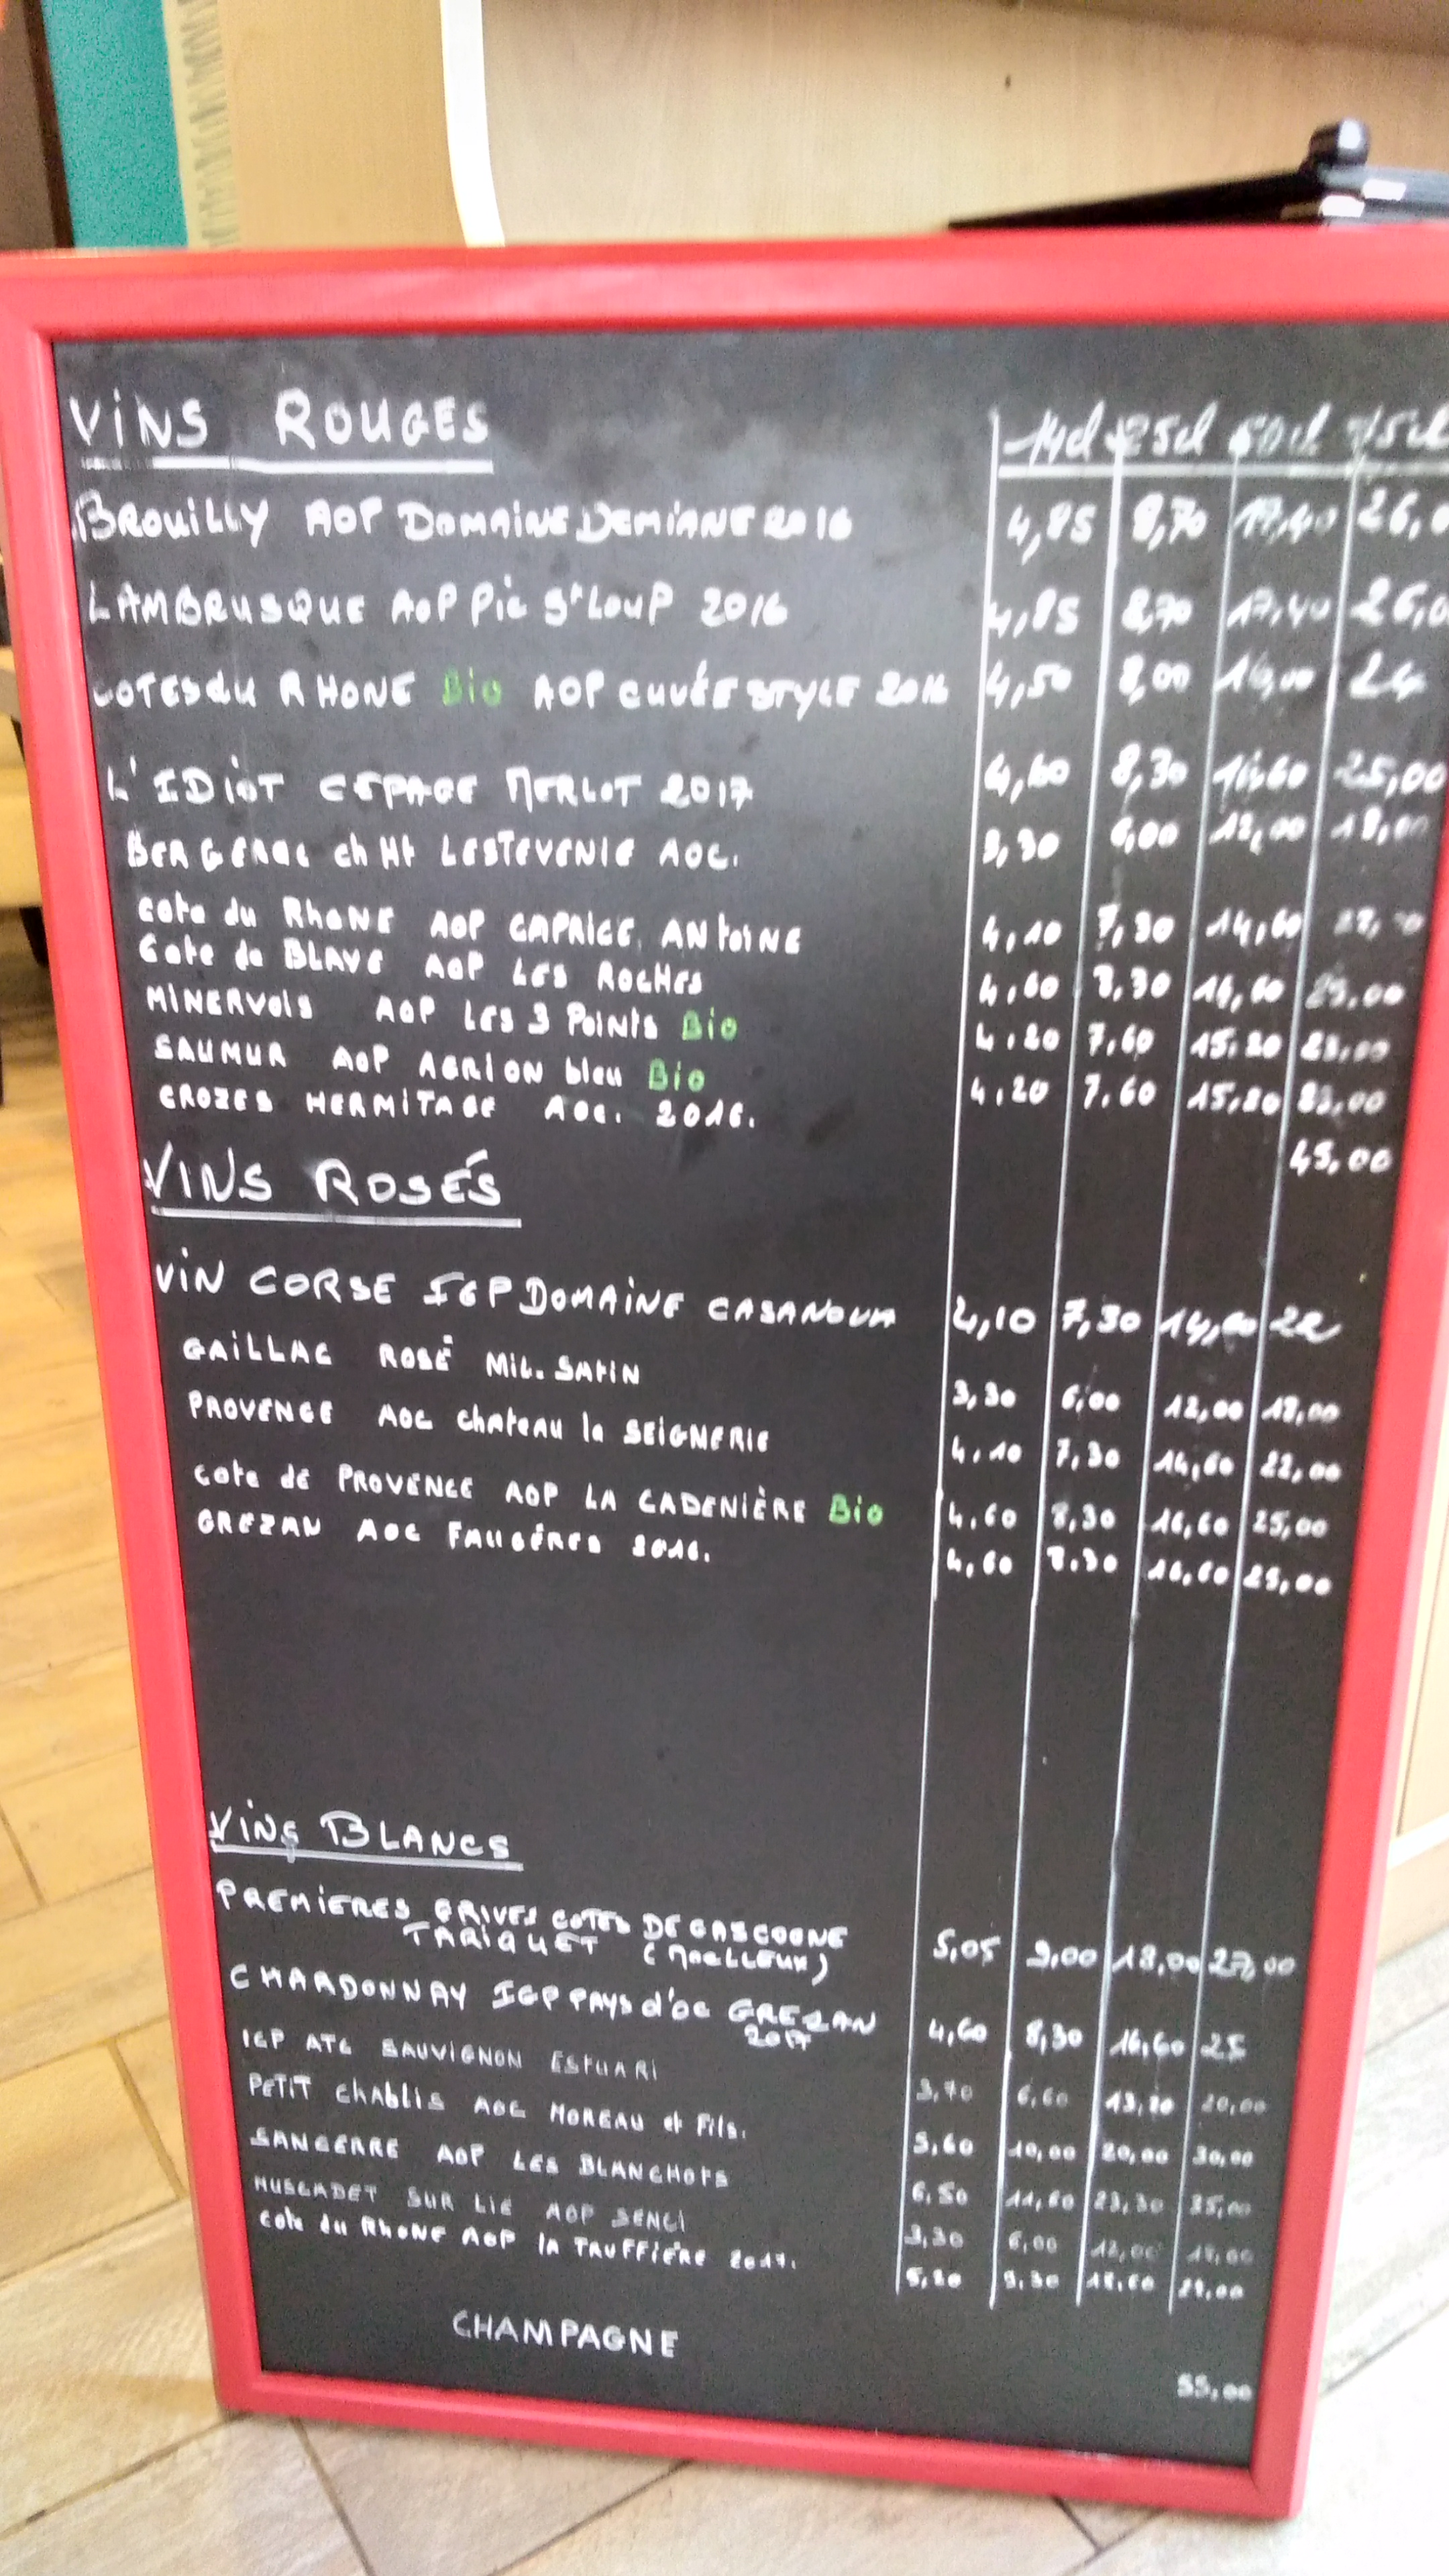 VINS ROUGES 14cl 25cl 50cl 75cl
BROUILLY AOP DOMAINE DEMIANE 2016 4,85 8,70 17,40 26,0
LAMBRUSQUE AOP PIC St LOUP 2016 4,85 8,70 17,40 26,0
COTES du RHONE Bio AOP CUVÉE STYLE 2016 4,50 8,00 16,00 24
L'IDIOT CEPAGE MERLOT 2017 4,60 8,30 16,60 25,00
BERGERAC ch Ht LESTEVENIE AOC. 3,30 6,00 12,00 18,00
Cote du RHONE AOP CAPRICE ANTOINE 4,10 7,30 14,60
Cote de BLAYE AOP LES ROCHES 4,60 8,30 16,60 25,00
MINERVOIS AOP LES 3 POINTS Bio 4,20 7,60 15,20 23,00
SAUMUR AOP AGRION bleu Bio 4,20 7,60 15,20 23,00
CROZES HERMITAGE AOC. 2016. 45,00
VINS ROSÉS
VIN CORSE IGP DOMAINE CASANOVA 4,10 7,30 14,60 22
GAILLAC ROSÉ MIL. SATIN 3,30 6,00 12,00 18,00
PROVENCE AOC Chateau la SEIGNERIE 4,10 7,30 14,60 22,00
Cote de PROVENCE AOP LA CADENIÈRE Bio 4,60 8,30 16,60 25,00
GREZAN AOC FAUGÉRES 2016. 4,60 8.30 16,60 25,00
VINS BLANCS
PREMIERES GRIVES COTES DE GASCOGNE
TARIQUET (MOELLEUX) 5,05 9,00 18,00 27,00
CHARDONNAY IGP PAYS d'OC GREZAN 4,60 8,30 16,60 25
2017
IGP ATC SAUVIGNON ESTUARI 3,70 6,60 13,20 20,00
PETIT Chablis AOC MOREAU et Fils. 5,60 10,00 20,00 30,00
SANCERRE AOP LES BLANCHOTS 6,50 11,60 23,30 35,00
MUSCADET SUR LIE AOP SENCI 3,30 6,00 12,00 18,00
Cote du RHONE AOP la TRUFFIÈRE 2017. 5,20 9,30 18,60 28,00
CHAMPAGNE
55,00